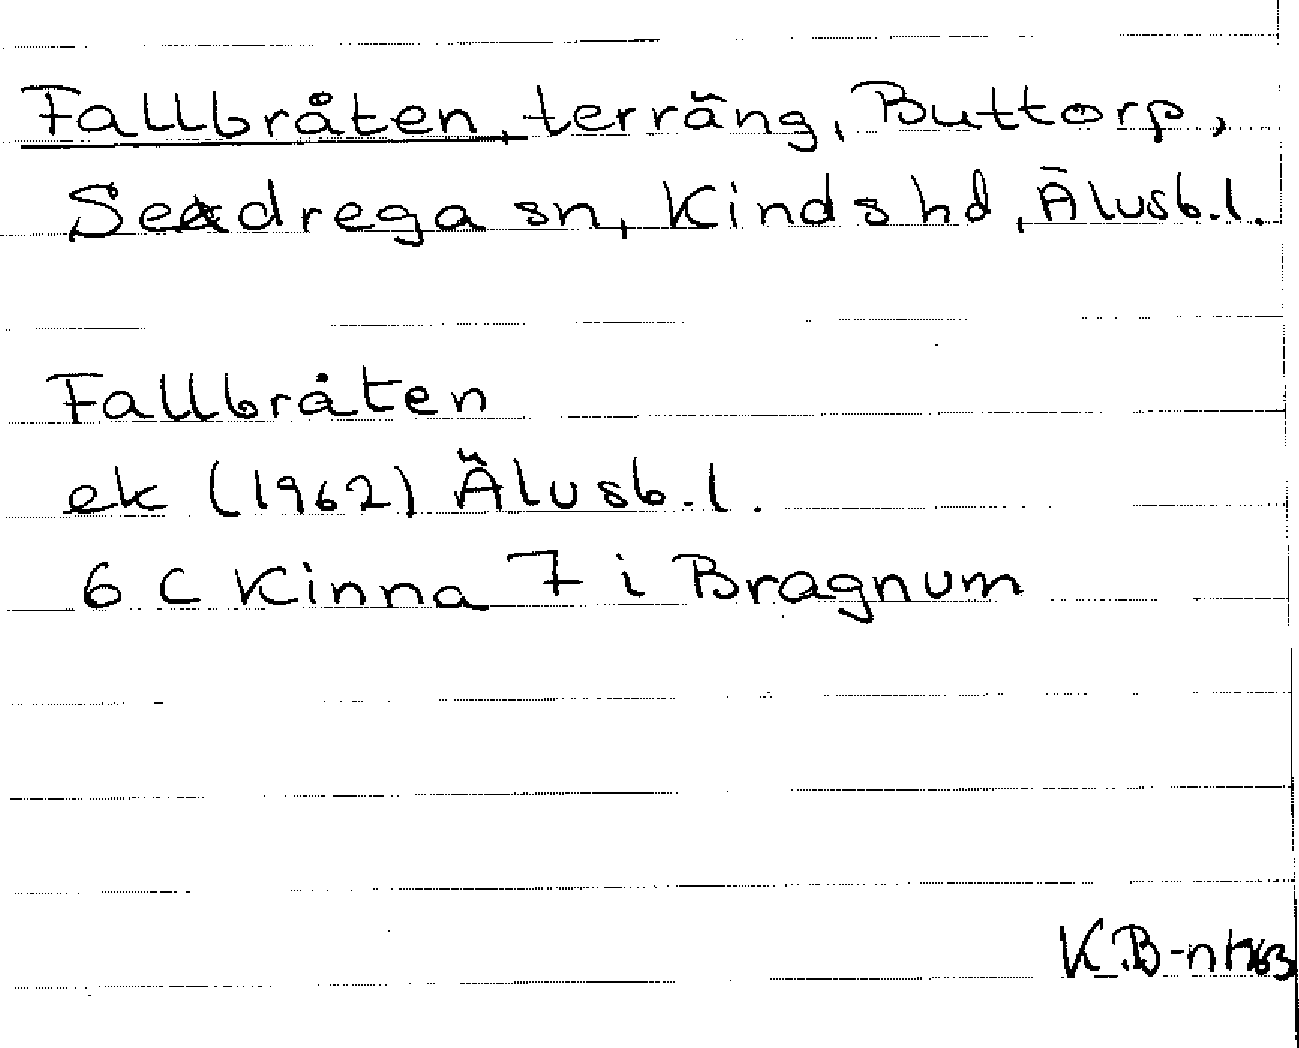 Fallbråten, terräng, Buttorp,
Sexdrega sn, Kinds hd, Älvsb.l.
Fallbråten
ek (1962) Älvsb.l.
6 C Kinna 7 i Bragnum
K.B-n 1963